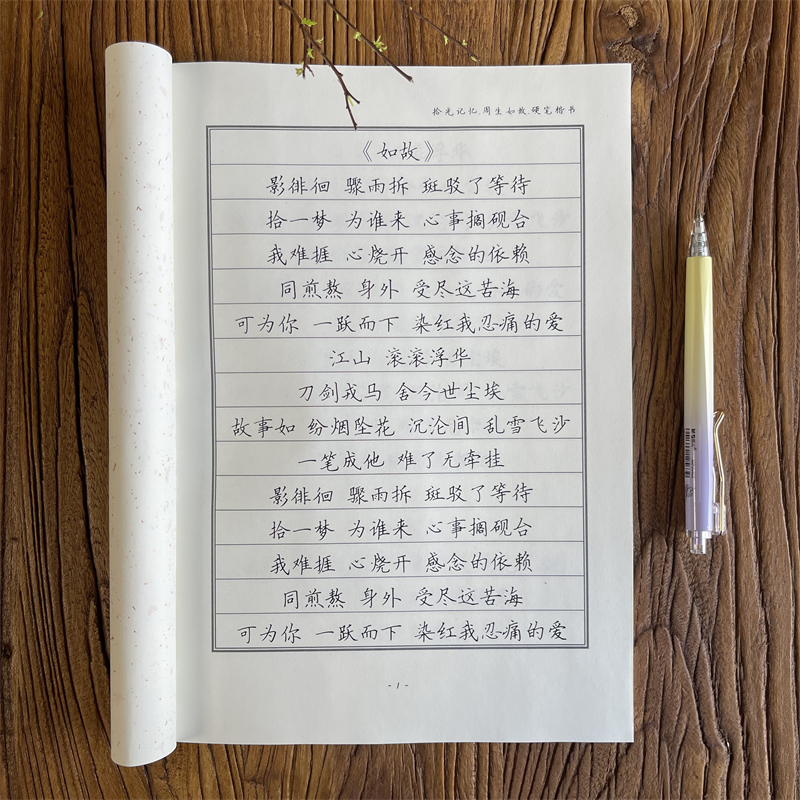 拾光记忆.周生如故.硬笔楷书
《如故》
影徘徊 骤雨拆 斑驳了等待
拾一梦 为谁来 心事搁砚台
我难捱 心烧开 感念的依赖
同煎熬 身外 受尽这苦海
可为你 一跃而下 染红我忍痛的爱
江山 滚滚浮华
刀剑戎马 舍今世尘埃
故事如 纷烟坠花 沉沦间 乱雪飞沙
一笔成他 难了无牵挂
影徘徊 骤雨拆 斑驳了等待
拾一梦 为谁来 心事搁砚台
我难捱 心烧开 感念的依赖
同煎熬 身外 受尽这苦海
可为你 一跃而下 染红我忍痛的爱
-1-